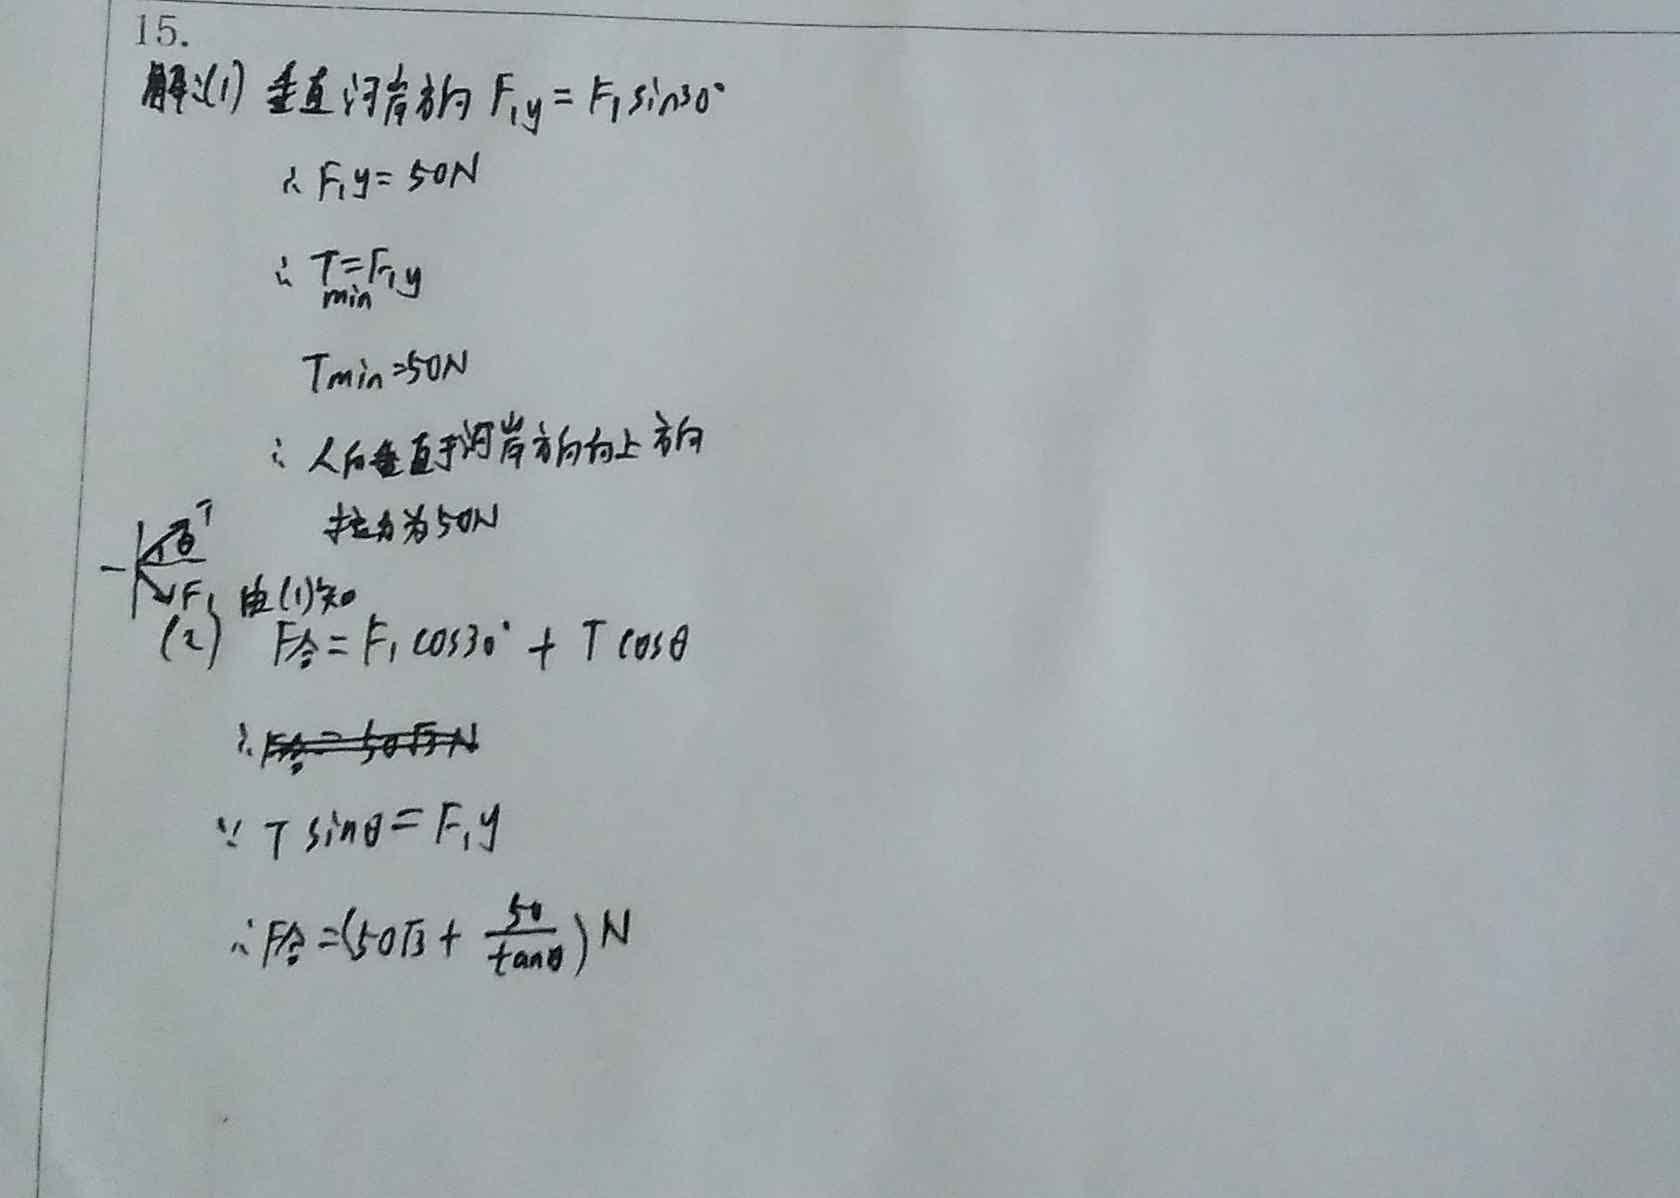 15.
解:(1) 垂直河岸方向 F₁y = F₁ sin30°
∴ F₁y = 50N
∴ T min = F₁y
Tmin = 50N
∴ 人向垂直于河岸方向向上方向
拉力为50N
T
θ
F₁
由(1)知
(2) F合 = F₁ cos30° + T cosθ
∴ F合 = 50√3 N
∵ T sinθ = F₁y
∴ F合 = (50√3 + 50/tanθ) N